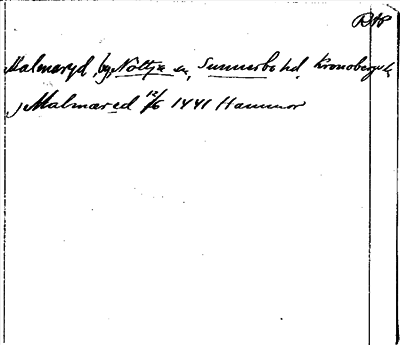 RAP
Malmaryd, by, Nöttja sn, Sunnerbo hd, Kronobergs l.
j Malmared 12/6 1441 Hammor